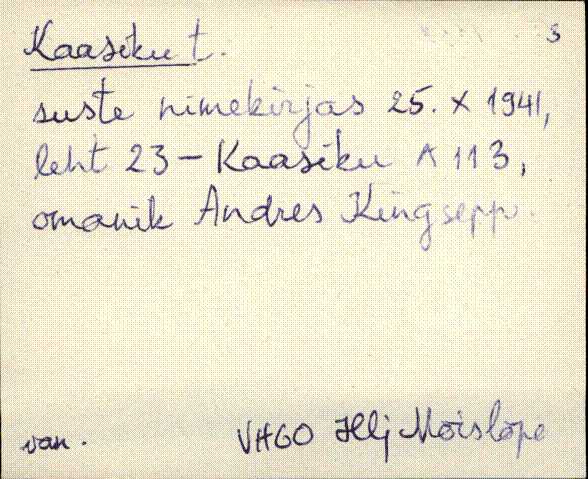 s
Kaasiku t.
suste nimekirjas 25. X 1941,
leht 23 - Kaasiku A 113,
omanik Andres Kingsepp.
van. VHGO Hlj Mõislope